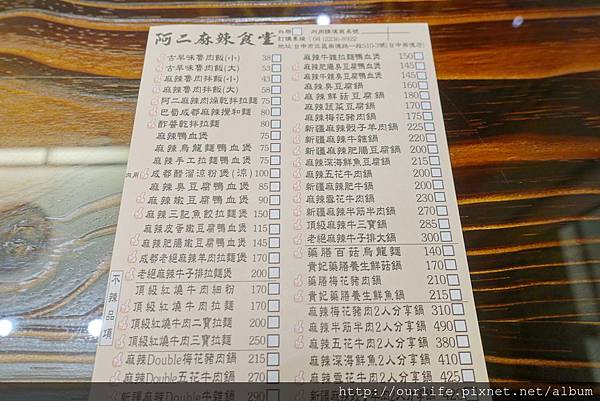 阿二麻辣食堂
外帶
內用 桌號
訂購專線 (04)2236-8922
古早味魯肉飯(小) 38
古早味魯肉飯(大) 53
麻辣魯肉拌飯(小) 43
麻辣魯肉拌飯(大) 58
阿二麻辣肉燥乾拌麵 75
巴蜀成都麻辣攪和麵 80
酢醬乾拌拉麵 75
麻辣鴨血煲 75
麻辣烏龍麵鴨血煲 75
麻辣手工拉麵鴨血煲 75
內用 成都醋溜涼粉煲(涼) 100
麻辣臭豆腐鴨血煲 85
麻辣嫩豆腐鴨血煲 90
麻辣三記魚餃拉麵煲 150
麻辣皮蛋嫩豆腐鴨血煲 115
麻辣肥腸嫩豆腐鴨血煲 145
成都老碗麻辣羊肉拉麵煲 170
老碗麻辣牛子排拉麵煲 200
不辣品項
頂級紅燒牛肉細粉 170
頂級紅燒牛肉拉麵 170
頂級紅燒牛肉二寶拉麵 200
頂級紅燒牛肉三寶拉麵 250
麻辣Double梅花豬肉鍋 215
麻辣Double五花牛肉鍋 270
麻辣牛雜拉麵鴨血煲 150
麻辣肥腸臭豆腐鴨血煲 145
麻辣大腸臭豆腐鴨血煲 145
麻辣臭豆腐鍋 160
麻辣鮮菇豆腐鍋 180
麻辣蔬菜豆腐鍋 170
麻辣梅花豬肉鍋 175
新疆麻辣骰子羊肉鍋 225
新疆麻辣牛雜鍋 220
新疆麻辣肥腸豆腐鍋 200
麻辣深海鮮魚豆腐鍋 215
麻辣五花牛肉鍋 210
新疆麻辣肥牛鍋 200
麻辣雪花牛肉鍋 230
新疆麻辣半筋半肉鍋 270
頂級麻辣牛三寶鍋 285
老碗麻辣牛子排大鍋 300
藥膳百菇烏龍麵 140
貴妃藥膳養生鮮菇鍋 170
藥膳梅花豬肉鍋 210
貴妃藥膳養生鮮魚鍋 215
麻辣梅花豬肉2人分享鍋 310
麻辣半筋半肉2人分享鍋 490
麻辣五花牛肉2人分享鍋 380
麻辣深海鮮魚2人分享鍋 410
麻辣雪花牛肉2人分享鍋 425
http://ourlife.pixnet.net/album